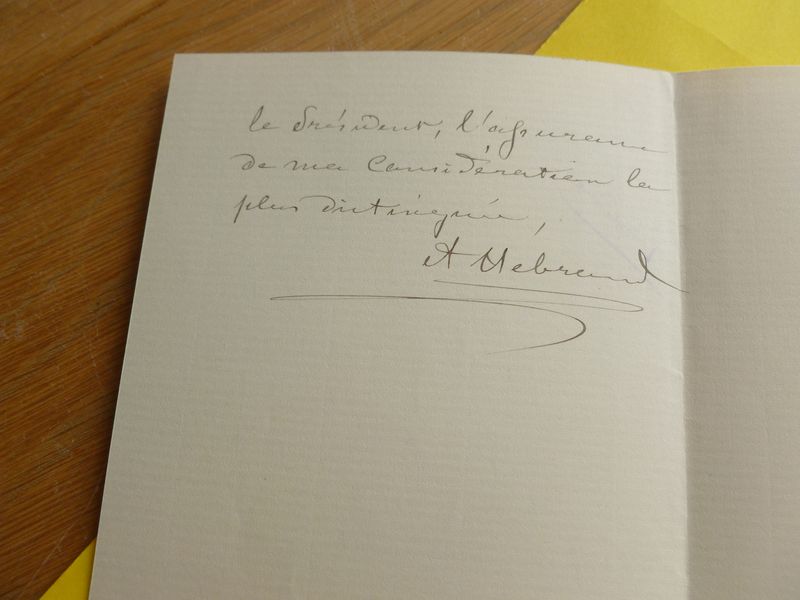 le Président, l'assurance
de ma considération la
plus distinguée,
A Hebrard